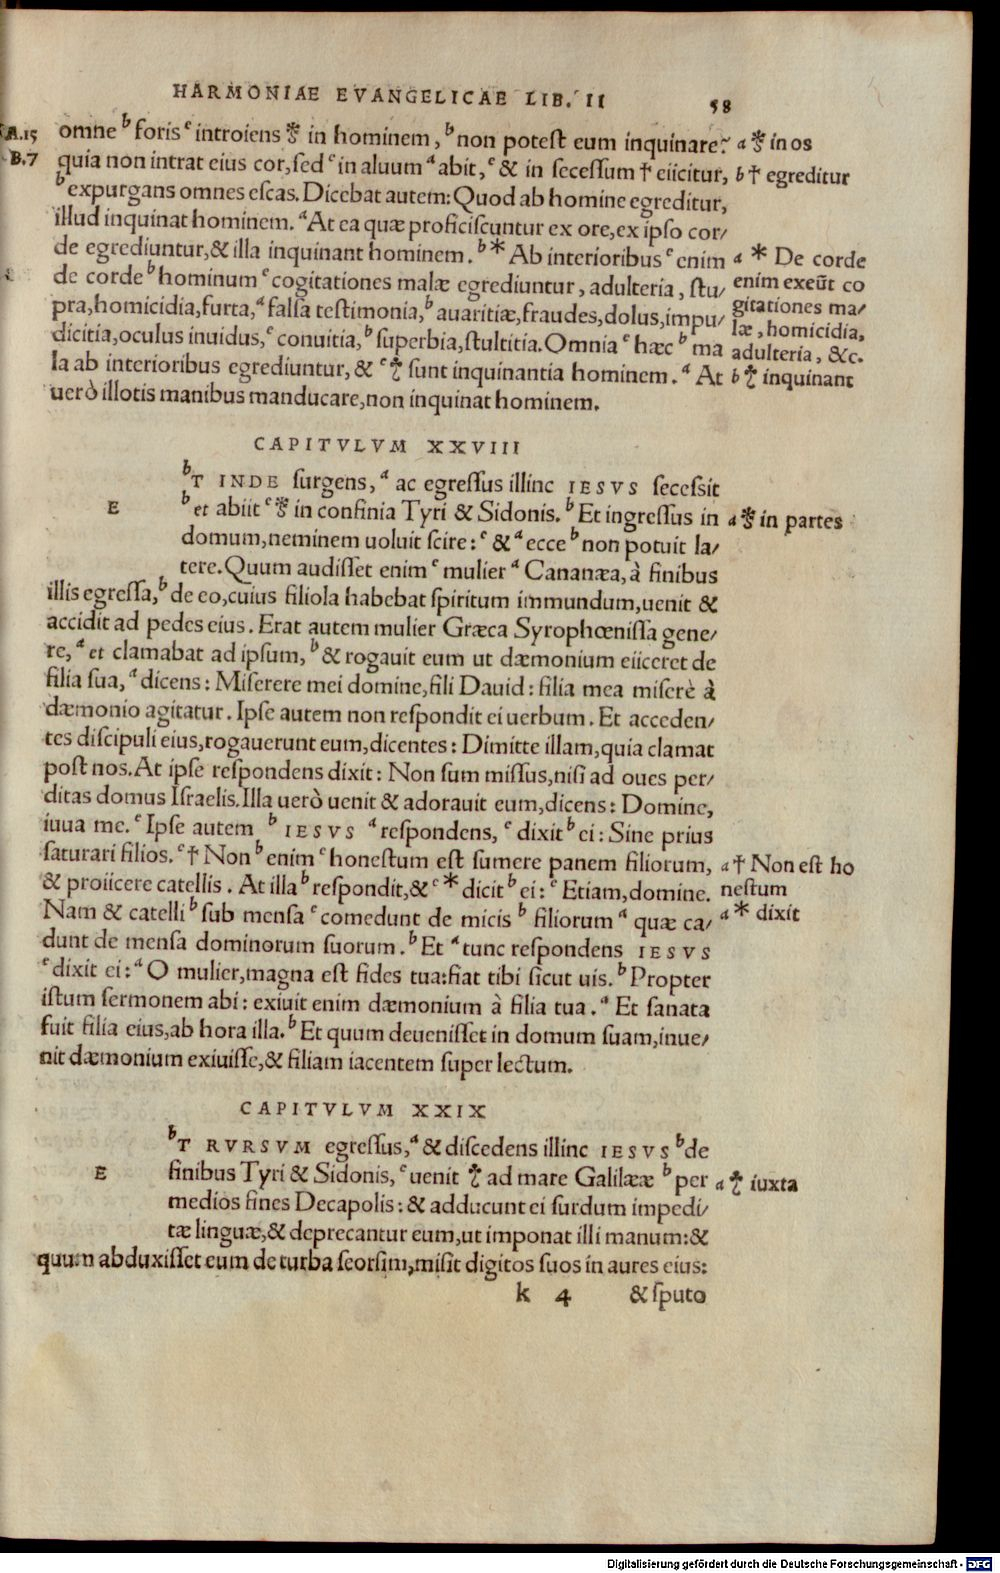 HARMONIAE EVANGELICAE LIB. II 58
A.15 omne b foris c introiens ☙ in hominem, b non potest eum inquinare? a ☙ in os
B.7 quia non intrat eius cor, sed c in aluum a abit, c & in secessum † eiicitur, b † egreditur
b expurgans omnes escas. Dicebat autem: Quod ab homine egreditur,
illud inquinat hominem. a At ea quæ proficiscuntur ex ore, ex ipso cor/
de egrediuntur, & illa inquinant hominem. b * Ab interioribus c enim a * De corde
de corde b hominum c cogitationes malæ egrediuntur, adulteria, stu/ enim exeūt co
pra, homicidia, furta, a falsa testimonia, b auaritiæ, fraudes, dolus, impu/ gitationes ma/
dicitia, oculus inuidus, c conuitia, b superbia, stultitia. Omnia c hæc b ma læ, homicidia,
la ab interioribus egrediuntur, & c ☧ sunt inquinantia hominem. a At adulteria, &c.
uerò illotis manibus manducare, non inquinat hominem. b ☧ inquinant
CAPITVLVM XXVIII
E
b T INDE surgens, a ac egressus illinc IESVS secessit
b et abiit c ☙ in confinia Tyri & Sidonis. b Et ingressus in a ☙ in partes
domum, neminem uoluit scire: c & a ecce b non potuit la/
tere. Quum audisset enim c mulier a Cananæa, à finibus
illis egressa, b de eo, cuius filiola habebat spiritum immundum, uenit &
accidit ad pedes eius. Erat autem mulier Græca Syrophœnissa gene/
re, a et clamabat ad ipsum, b & rogauit eum ut dæmonium eiiceret de
filia sua, a dicens: Miserere mei domine, fili Dauid: filia mea miserè à
dæmonio agitatur. Ipse autem non respondit ei uerbum. Et acceden/
tes discipuli eius, rogauerunt eum, dicentes: Dimitte illam, quia clamat
post nos. At ipse respondens dixit: Non sum missus, nisi ad oues per/
ditas domus Israelis. Illa uerò uenit & adorauit eum, dicens: Domine,
iuua me. c Ipse autem b IESVS a respondens, c dixit b ei: Sine prius
saturari filios. c † Non b enim c honestum est sumere panem filiorum, a † Non est ho
& proiicere catellis. At illa b respondit, & c * dicit b ei: c Etiam, domine. nestum
Nam & catelli b sub mensa c comedunt de micis b filiorum a quæ ca/ a * dixit
dunt de mensa dominorum suorum. b Et a tunc respondens IESVS
c dixit ei: a O mulier, magna est fides tua: fiat tibi sicut uis. b Propter
istum sermonem abi: exiuit enim dæmonium à filia tua. a Et sanata
fuit filia eius, ab hora illa. b Et quum deuenisset in domum suam, inue/
nit dæmonium exiuisse, & filiam iacentem super lectum.
CAPITVLVM XXIX
E
b T RVRSVM egressus, a & discedens illinc IESVS b de
finibus Tyri & Sidonis, c uenit ☧ ad mare Galilææ b per a ☧ iuxta
medios fines Decapolis: & adducunt ei surdum impedi/
tæ linguæ, & deprecantur eum, ut imponat illi manum: &
quum abduxisset eum de turba seorsim, misit digitos suos in aures eius:
k 4 & sputo
Digitalisierung gefördert durch die Deutsche Forschungsgemeinschaft - DFG